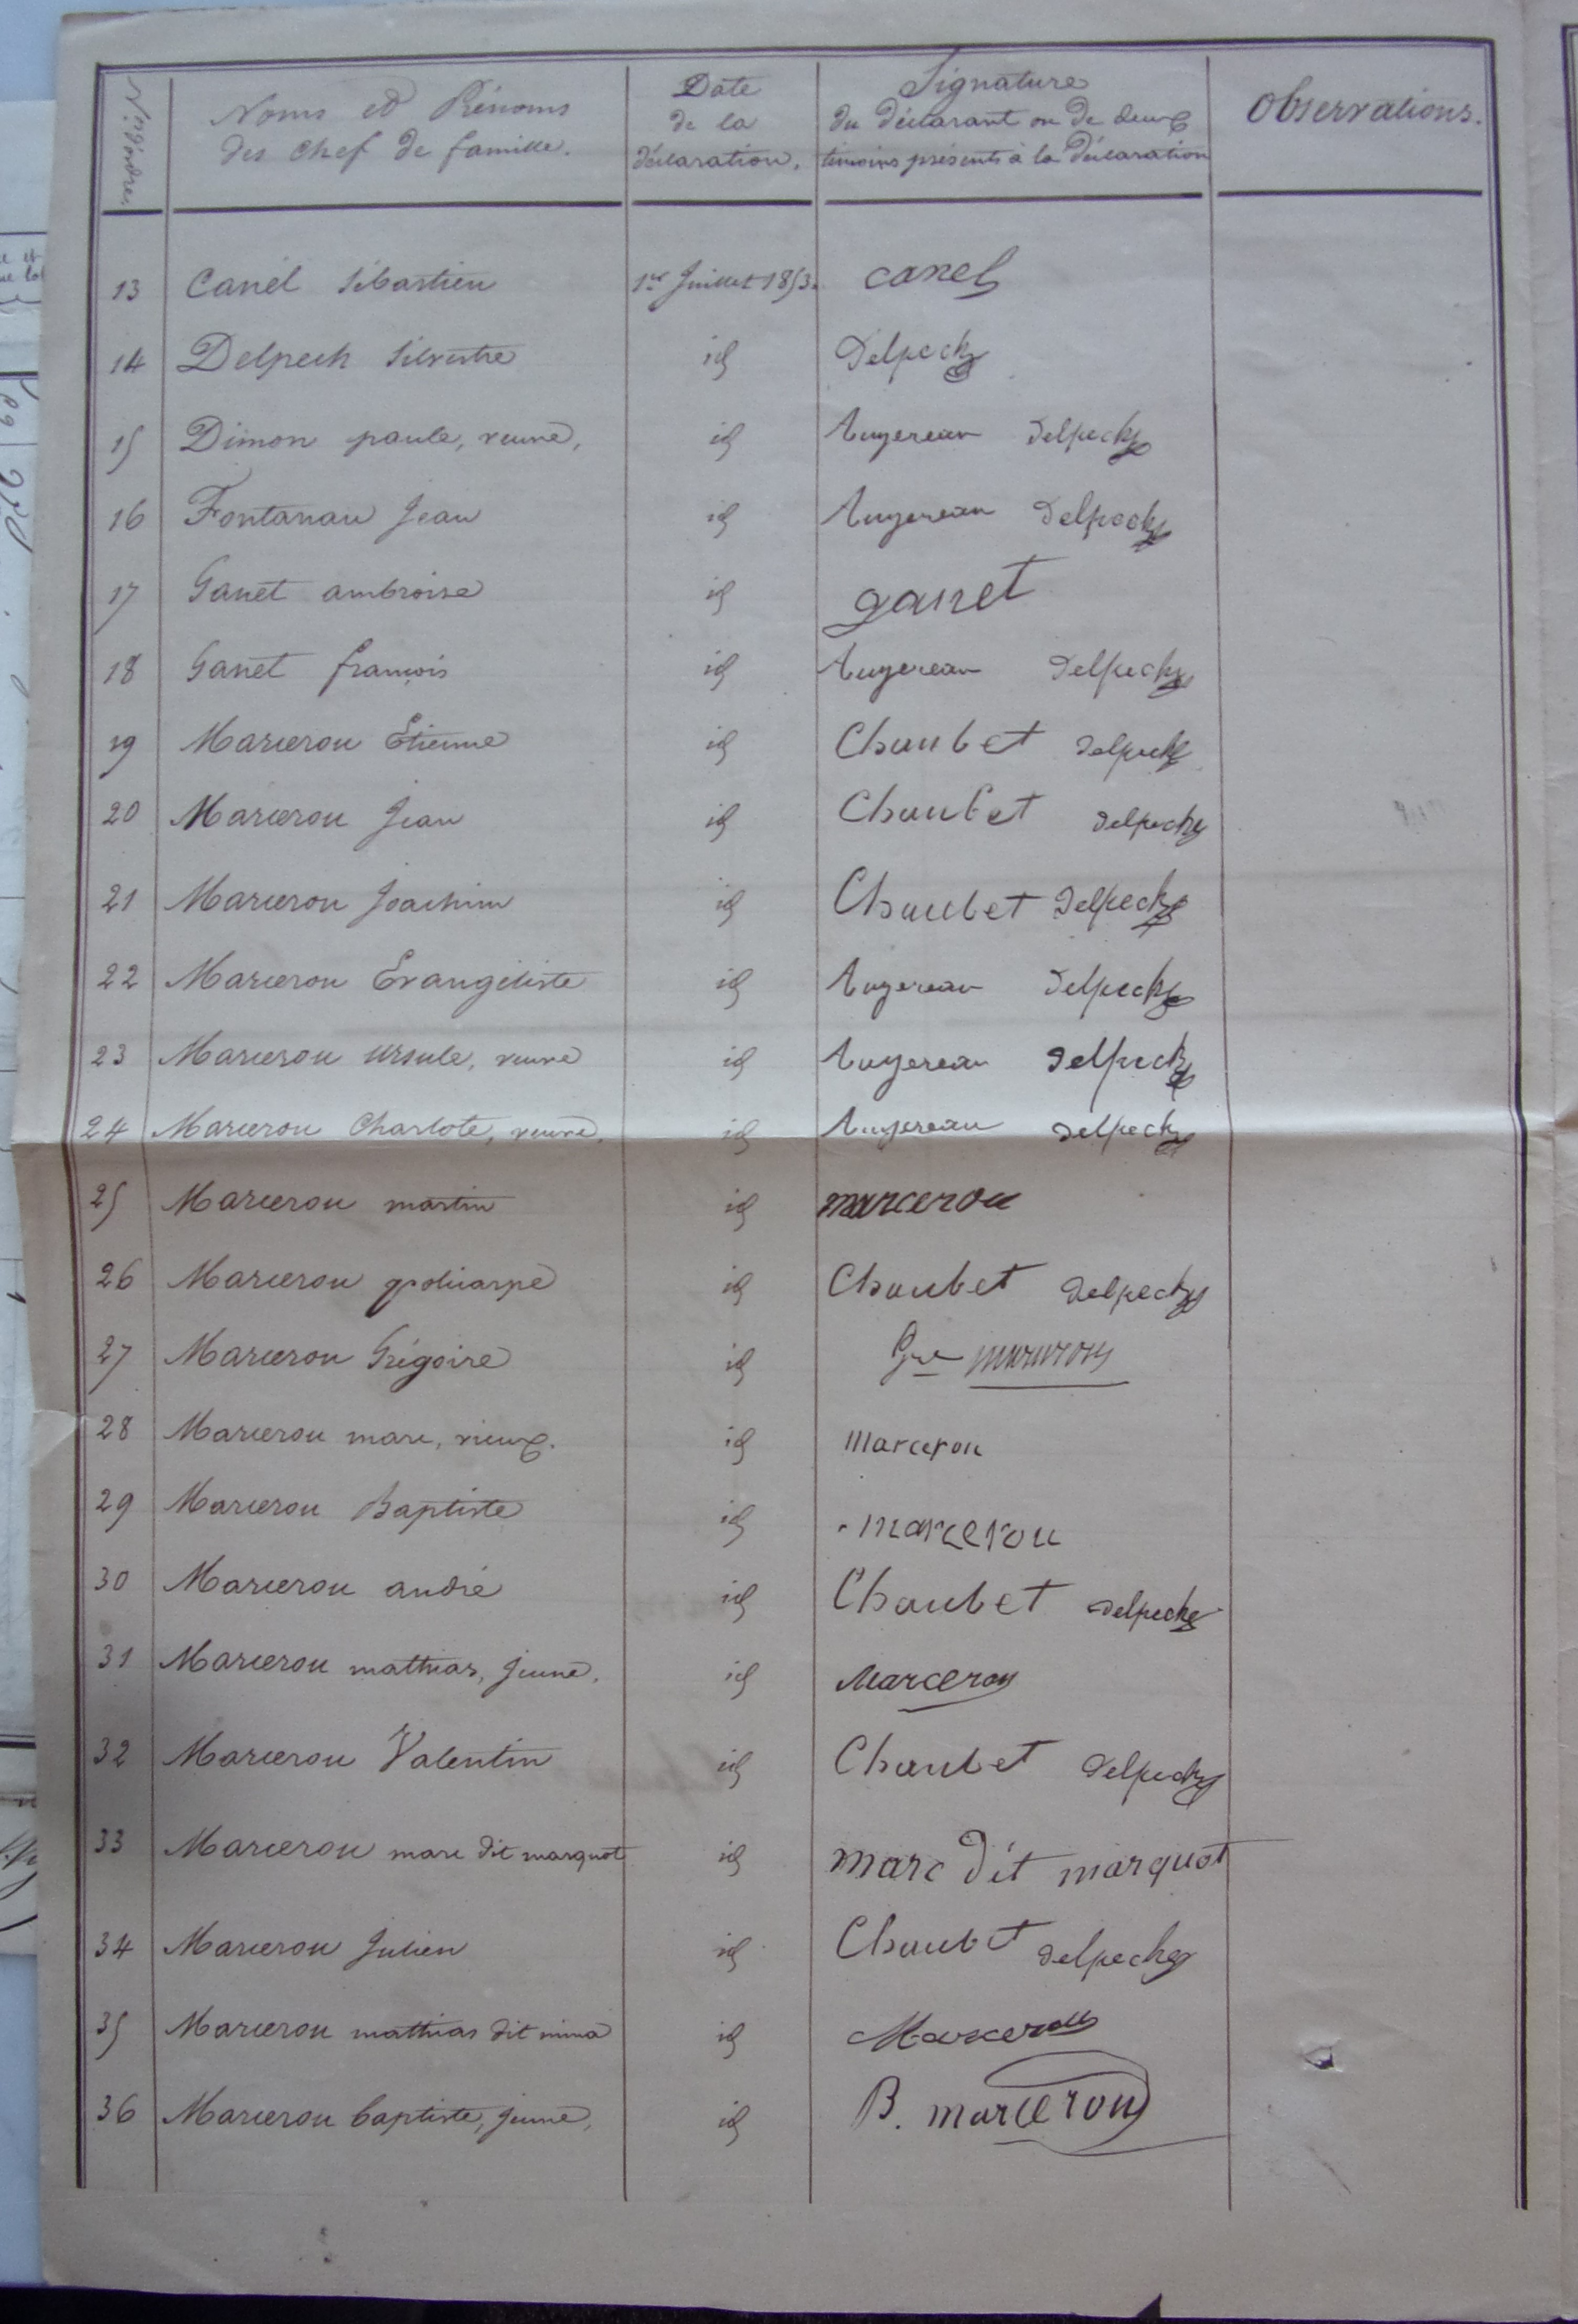 Nos d'ordres
Noms et Prénoms
des chef de famille.
Date
de la
déclaration.
Signature
du déclarant ou de deux
témoins présents à la déclaration
Observations.
13 Canél Sébastien 1er Juillet 1853. canel
14 Delpech Silvestre id Delpech
15 Dimon paule, veuve, id Augereau Delpech
16 Fontanau Jean id Augereau Delpech
17 Ganet ambroise id ganet
18 Ganet françois id Augereau Delpech
19 Marcerou Étienne id Chaubet Delpech
20 Marcerou Jean id Chaubet Delpech
21 Marcerou Joachim id Chaubet Delpech
22 Marcerou Evangéliste id Augereau Delpech
23 Marcerou Ursule, veuve id Augereau Delpech
24 Marcerou Charlote, veuve, id Augereau Delpech
25 Marcerou martin id marcerou
26 Marcerou policarpe id Chaubet Delpech
27 Marcerou Grégoire id Gre marcerou
28 Marcerou marc, vieux. id marcerou
29 Marcerou Baptiste id marcerou
30 Marcerou andré id Chaubet Delpech
31 Marcerou mathias, jeune. id Marcerou
32 Marcerou Valentin id Chaubet Delpech
33 Marcerou marc dit marquot id marc dit marquot
34 Marcerou Julien id Chaubet Delpech
35 Marcerou mathias dit id Marcerou
36 Marcerou baptiste, jeune, id B. marcerou